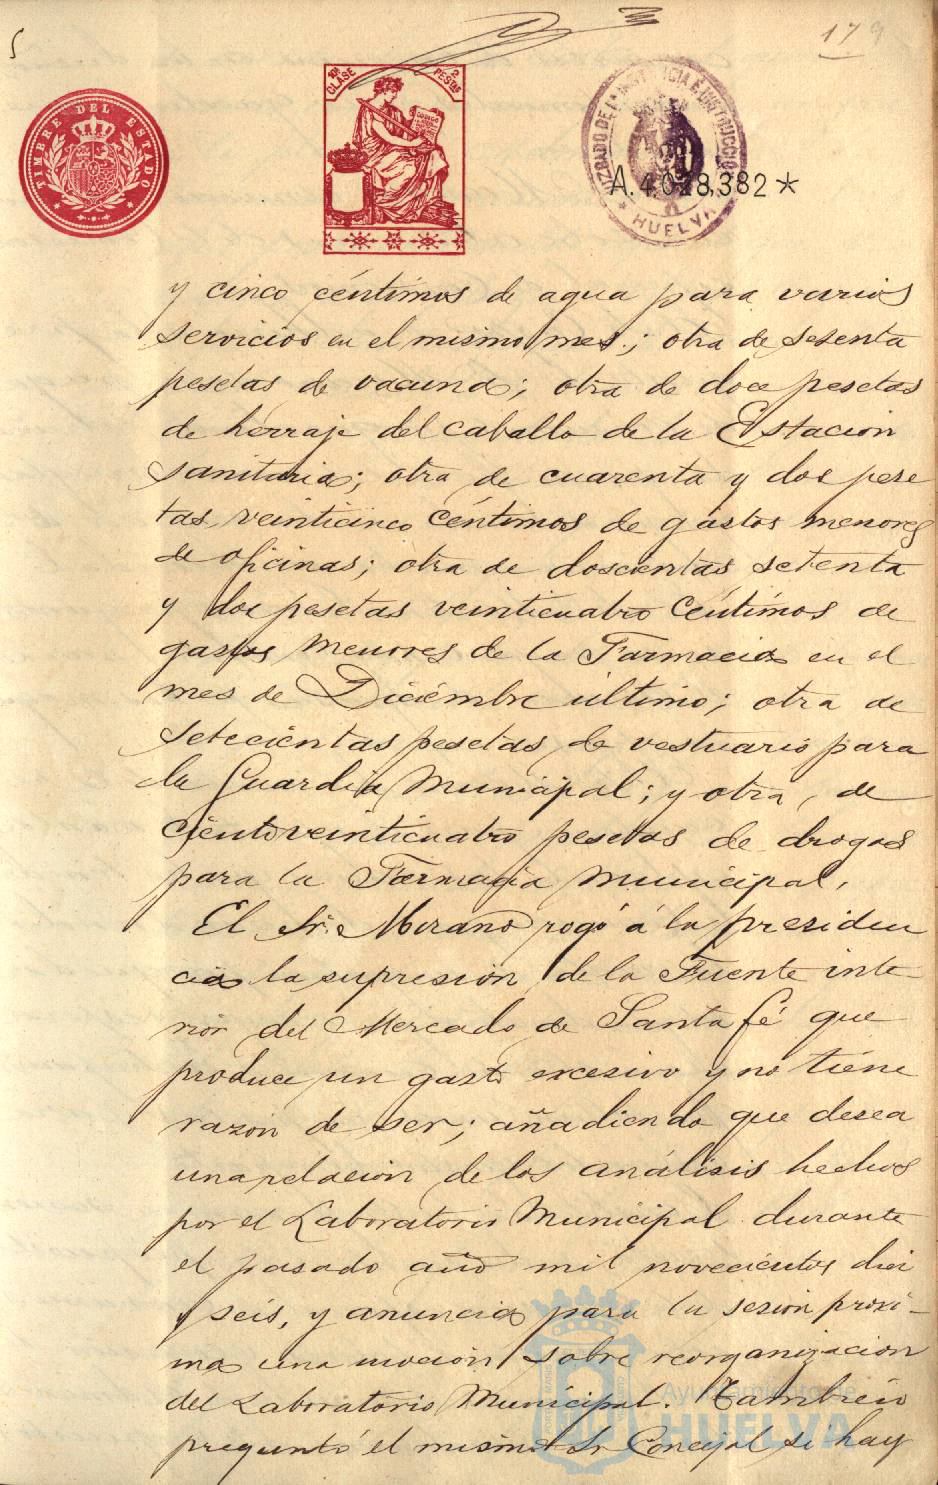 179
TIMBRE DEL ESTADO
10ª CLASE
2 PESETAS
JUZGADO DE 1ª INSTANCIA É INSTRUCCIÓN
HUELVA
A.4.028,382 *
y cinco céntimos de agua para varios
servicios en el mismo mes; otra de sesenta
pesetas de vacuna; otra de doce pesetas
de herraje del caballo de la Estación
sanitaria; otra de cuarenta y dos pese
tas veinticinco céntimos de gastos menores
de oficinas; otra de doscientas setenta
y dos pesetas veinticuatro céntimos de
gastos menores de la Farmacia en el
mes de Diciembre último; otra de
setecientas pesetas de vestuario para
la Guardia Municipal; y otra, de
cientoveinticuatro pesetas de drogas
para la Farmacia Municipal.
El Sr. Morano rogó á la presiden
cia la supresión de la Fuente inte
rior del Mercado de Santa fé que
produce un gasto excesivo y no tiene
razón de ser; añadiendo que desea
una relación de los análisis hechos
por el Laboratorio Municipal durante
el pasado año mil novecientos diez
y seis, y anuncia para la sesión próxi-
ma una moción sobre reorganización
del Laboratorio Municipal. También
preguntó el mismo Sr Concejal si hay
Ayuntamiento de
HUELVA